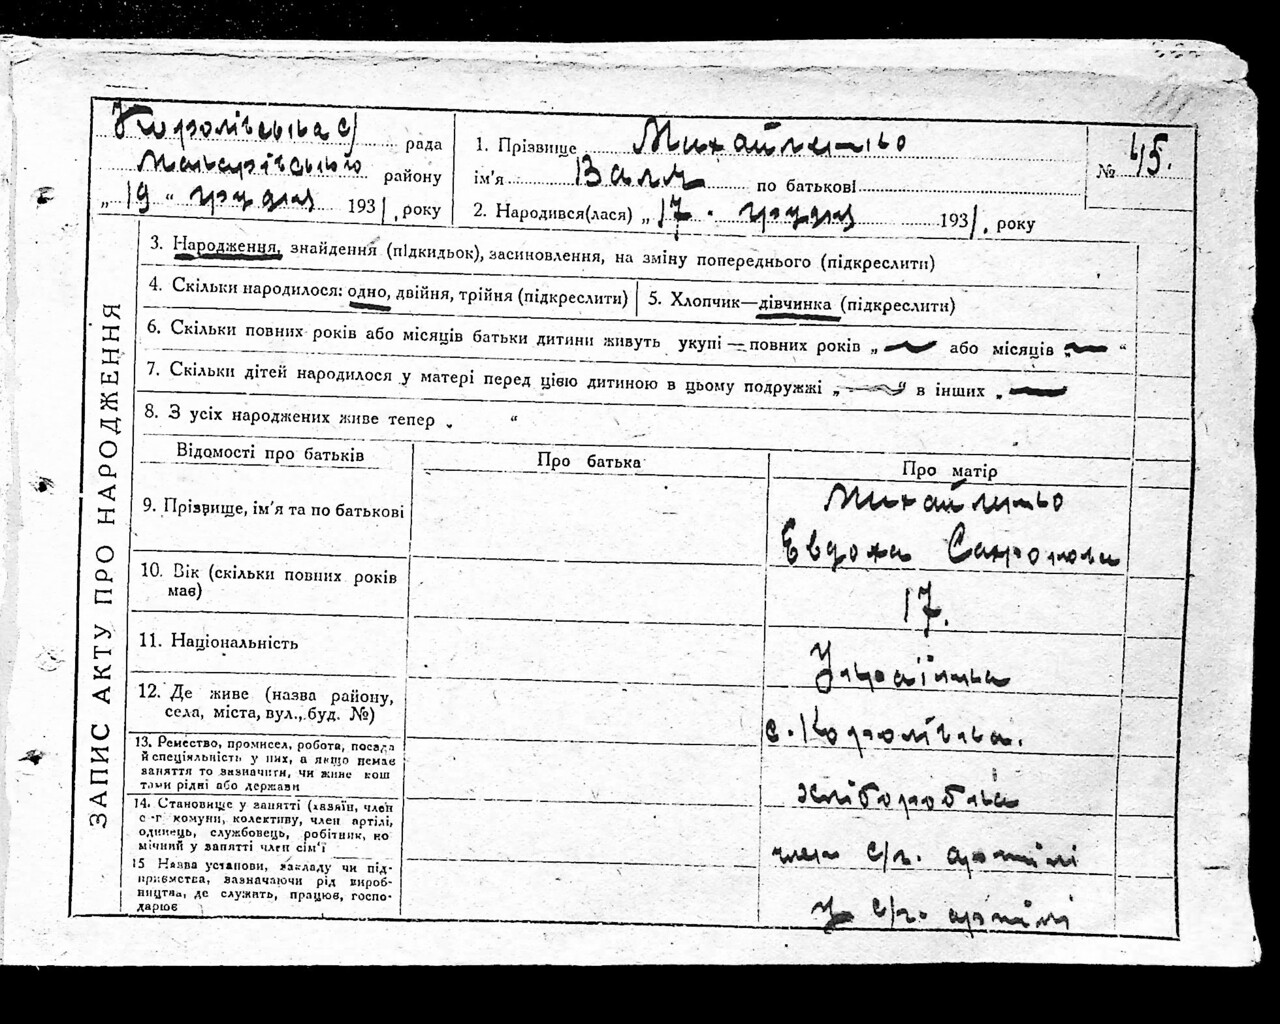 Королівська с/ рада
Макарівського району
„ 19 “ грудня 1931, року
1. Прізвище Михайленко
ім'я Валя по батькові
2. Народився(лася) „ 17. грудня 1931, року
№ 45.
ЗАПИС АКТУ ПРО НАРОДЖЕННЯ
3. Народження, знайдення (підкидьок), засиновлення, на зміну попереднього (підкреслити)
4. Скільки народилося: одно, двійня, трійня (підкреслити)
5. Хлопчик—дівчинка (підкреслити)
6. Скільки повних років або місяців батьки дитини живуть укупі — повних років „ — або місяців „ — “
7. Скільки дітей народилося у матері перед цією дитиною в цьому подружжі „ — “ в інших „ —
8. З усіх народжених живе тепер „ “
Відомості про батьків
Про батька
Про матір
9. Прізвище, ім'я та по батькові
Михайленко
Евдоха
10. Вік (скільки повних років
має)
17.
11. Національність
Українка
12. Де живе (назва району,
села, міста, вул., буд. №)
с. Королівка.
13. Ремество, промисел, робота, посада
й спеціяльність у них, а якщо немає
заняття то зазначити, чи живе кош
тами рідні або держави
хліборобка
14. Становище у занятті (хазяїн, член
с-г комуни, колективу, член артілі,
одинець, службовець, робітник, по
мічний у занятті член сім'ї
член с/г. артілі
15 Назва установи, закладу чи під-
приємства, зазначаючи рід вироб-
ництва, де служить, працює, госпо-
дарює
у с/г. артілі